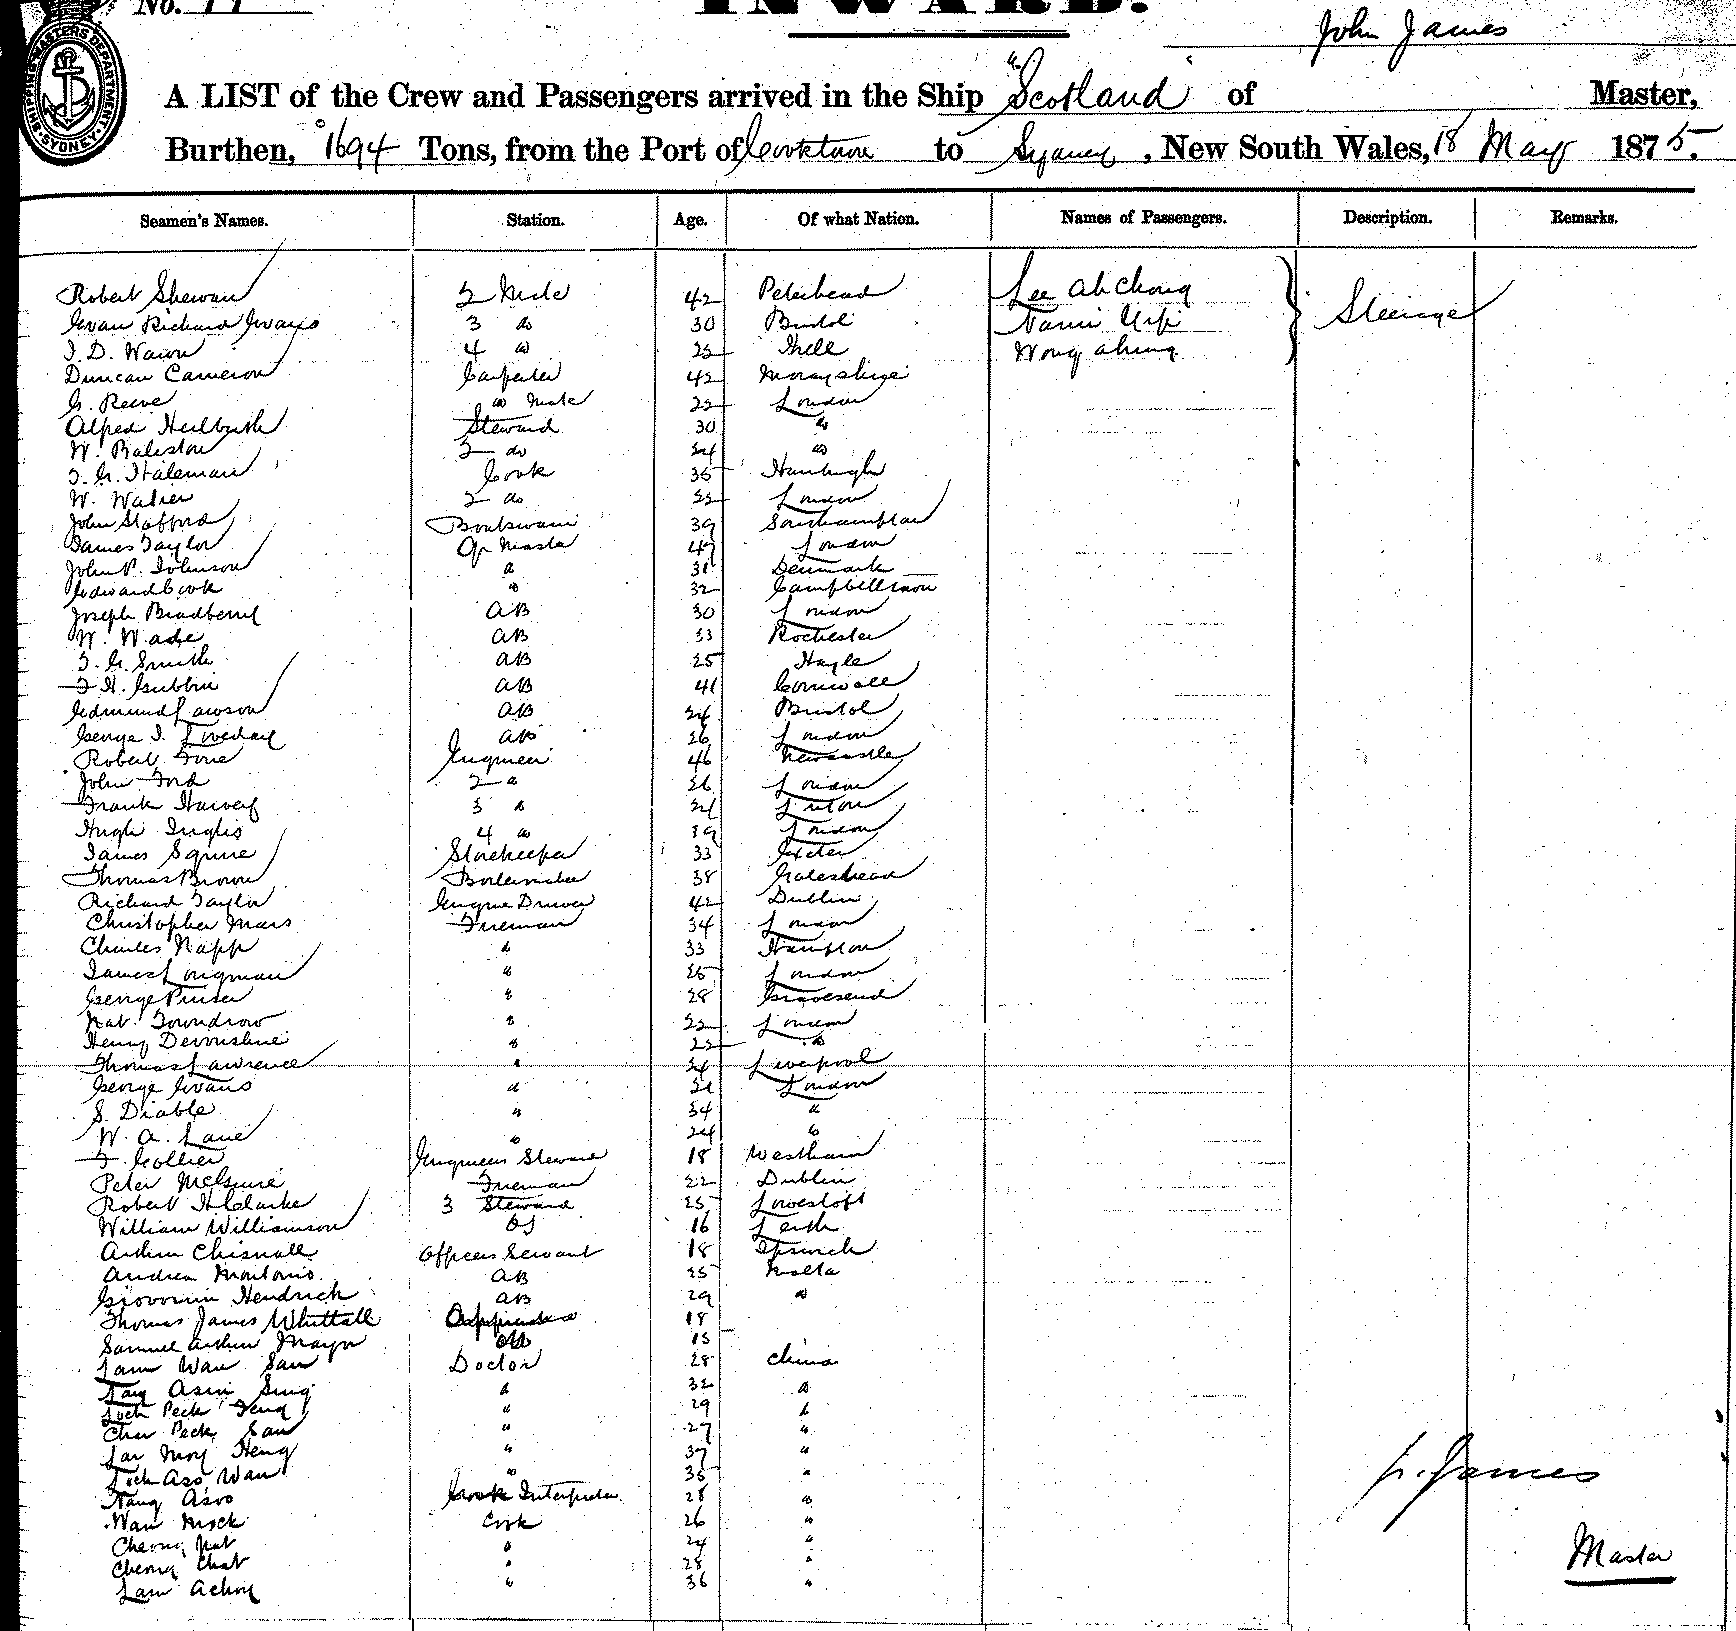 No. 77
INWARD.
John James
A LIST of the Crew and Passengers arrived in the Ship "Scotland" of Master,
Burthen, 1694 Tons, from the Port of Cooktown to Sydney, New South Wales, 18 May 1875.
Seamen's Names. Station. Age. Of what Nation. Names of Passengers. Description. Remarks.
Robert Shewan 2 Mate 42 Peterhead Lee Ah Chong Steerage
Evan Richard Evans 3 do 30 Bristol
4 do 25 Wong
Duncan Cameron Carpenter 42 Morayshire
G. Reeve do Mate 22 London
Alfred Steward 30 do
W. Ralston 2 do 24 do
Cook 35
W. Walker 2 do 22 London
John Stafford Boatswain 39 Southampton
James Taylor Qr Master 47 London
John P. Johnson " 31 Denmark
Edward Cook " 32 Campbelltown
Joseph Bradberry AB 30 London
W. Wade AB 33 Rochester
T. G. Smith AB 25 Hayle
T H. Gubbin AB 41 Cornwall
Edmund Lawson AB 24 Bristol
George I. Loveday AB 26 London
Robert Engineer 46 Newcastle
John Ford 2 " 26 London
Frank Harvey 3 " 24 Luton
Hugh Inglis 4 do 39 London
James Squire Storekeeper 33 Exeter
Thomas Brown Boilermaker 38 Gateshead
Richard Taylor Engine Driver 42 Dublin
Christopher Mars Fireman 34 London
Charles Napp " 33 Hampton
James Longman " 25 London
George " 28 Gravesend
Nat. Towndrow " 22 London
Henry Devonshire " 22 do
Thomas Lawrence " 24 Liverpool
George Evans " 21 London
S. Diable " 34 "
W. A. Lane " 24 "
F. Collier Engineers Steward 18 Westham
Peter McGuire Fireman 22 Dublin
Robert H Clarke 3 Steward 25 Lowestoft
William Williamson OS 16 Leith
Arthur Chisnall Officers Servant 18 Ipswich
Andrea AB 25 Malta
Hendrick AB 29 "
Thomas James Whittall Apprentice 18
Samuel Arthur Mayor 15
Lam Wan San Doctor 28 China
Sing " 32 "
Loch Peck " 29 "
Char Peck San " 27 "
Lar Moy Heng " 37 "
Loch Aso Wan " 35 "
Nang Asoo Interpreter 28 "
Wan Mock Cook 26 "
Cheong " 24 "
Cheong Chat " 28 "
Lam Achoy " 36 "
J. James
Master